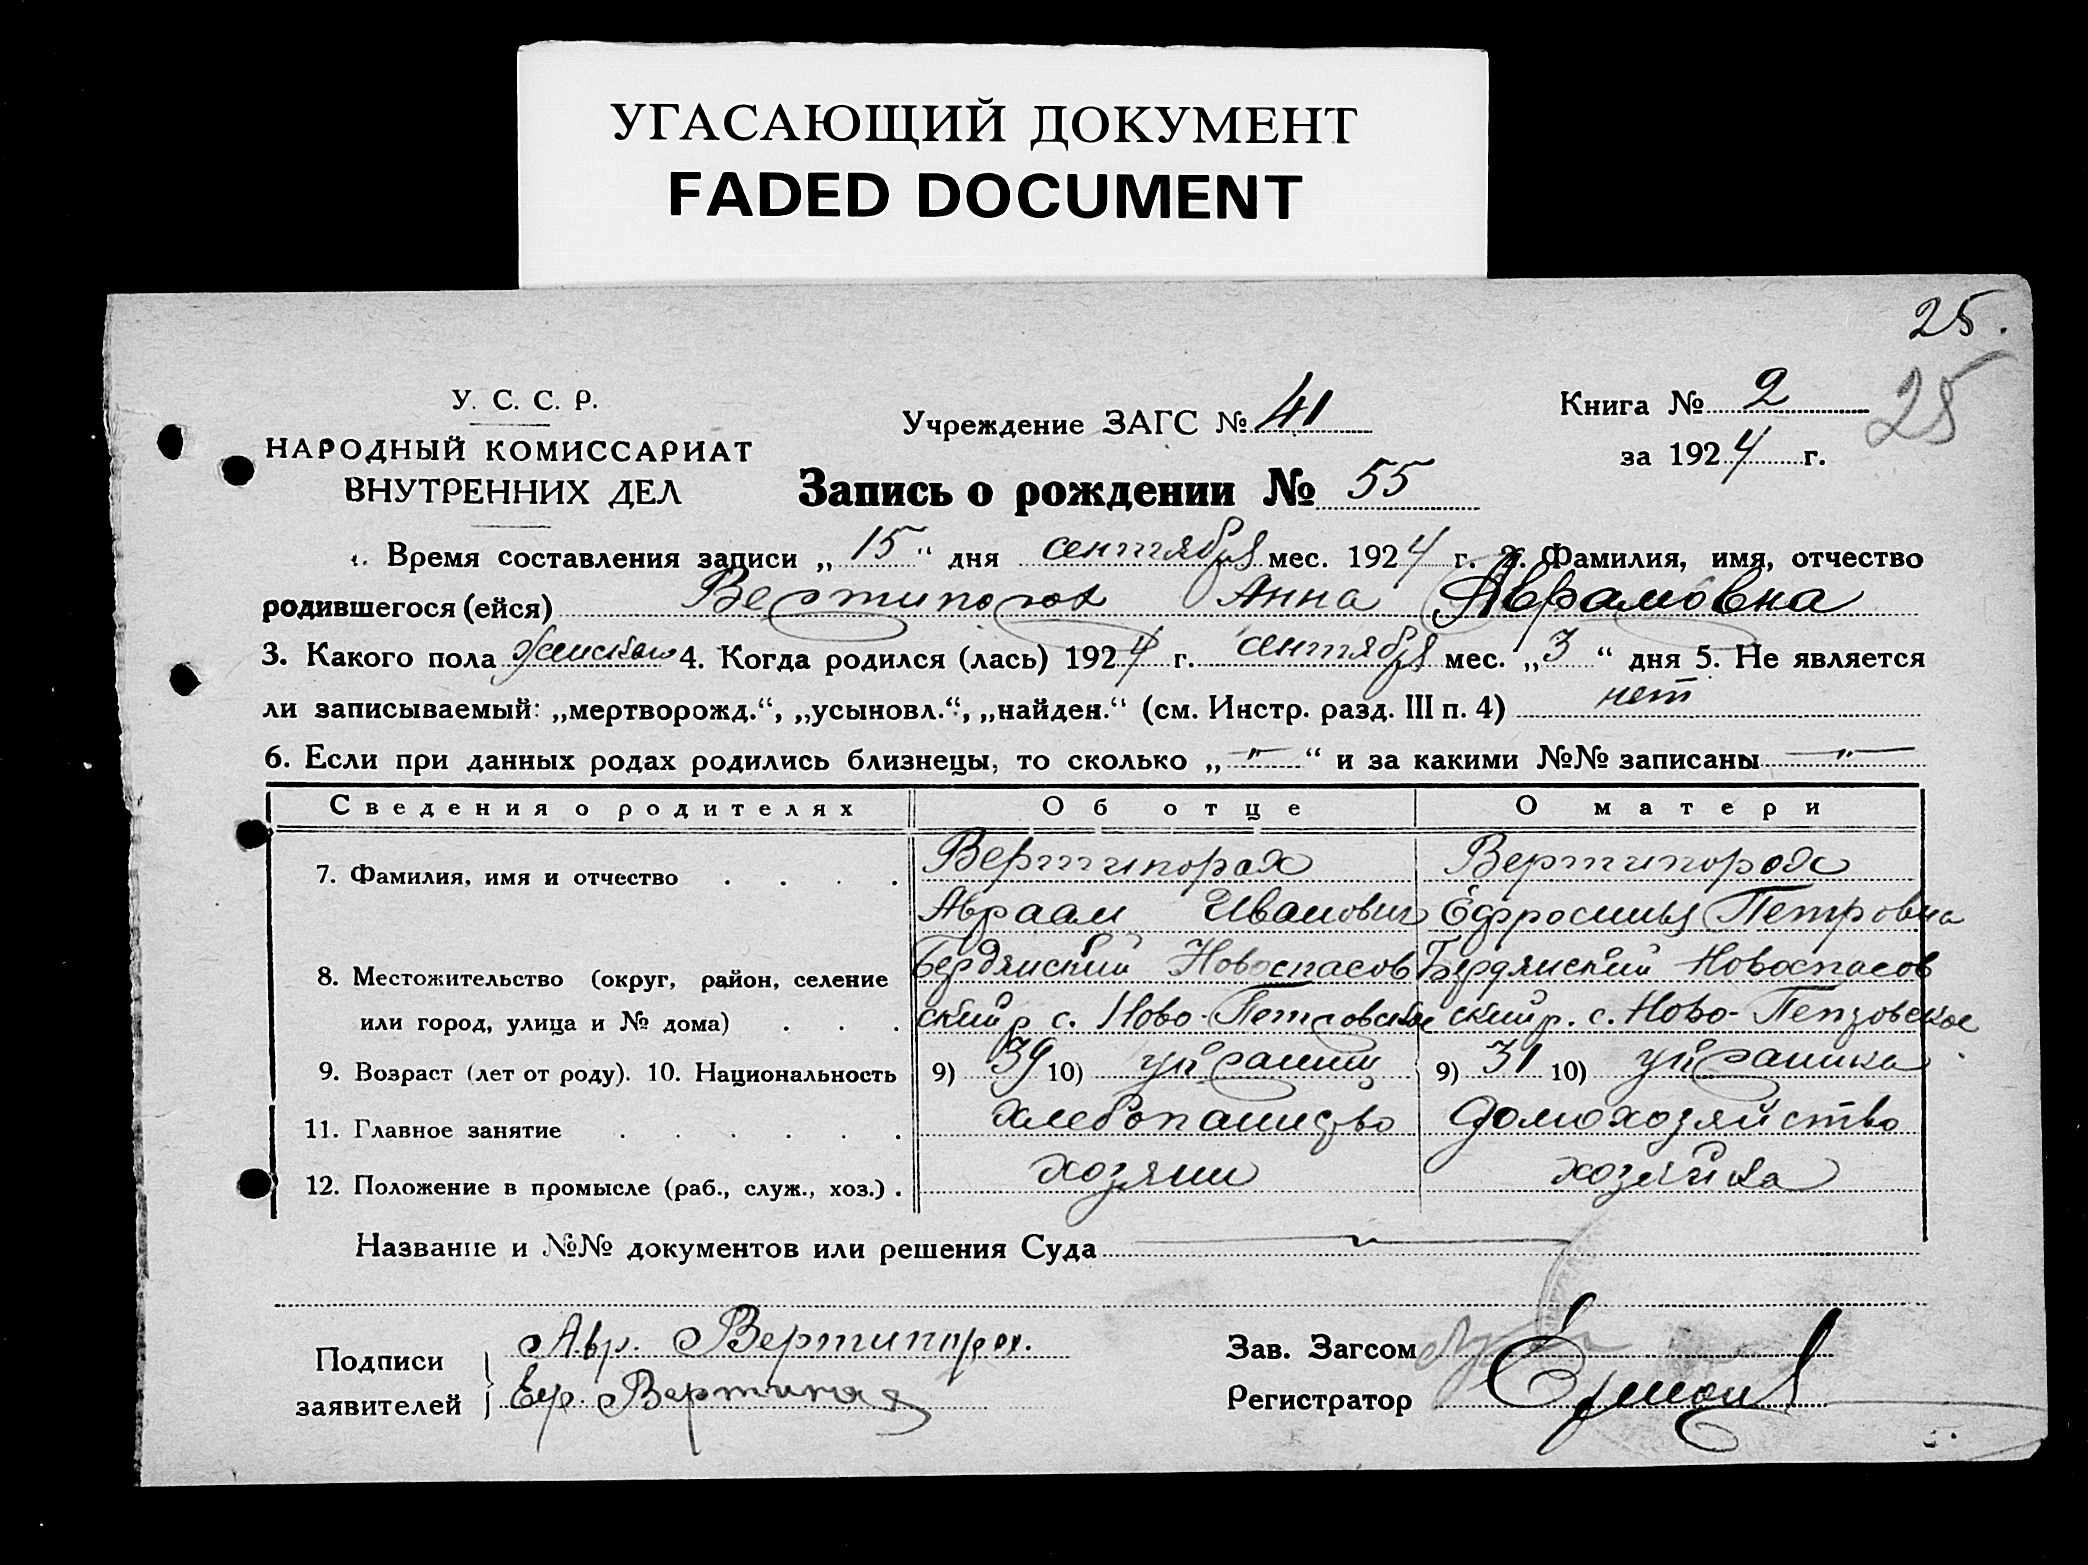 УГАСАЮЩИЙ ДОКУМЕНТ
FADED DOCUMENT
25.
25
У. С. С. Р.
НАРОДНЫЙ КОМИССАРИАТ
ВНУТРЕННИХ ДЕЛ
Учреждение ЗАГС № 41
Книга № 2
за 1924 г.
Запись о рождении № 55
1. Время составления записи „15“ дня сентября мес. 1924 г. 2. Фамилия, имя, отчество
родившегося (ейся) Вертипорох Анна Аврамовна
3. Какого пола женского 4. Когда родился (лась) 1924 г. сентября мес. „3“ дня 5. Не является
ли записываемый: „мертворожд.“, „усыновл.“, „найден.“ (см. Инстр. разд. III п. 4) нет
6. Если при данных родах родились близнецы, то сколько „ — “ и за какими №№ записаны —„—
Сведения о родителях Об отце О матери
7. Фамилия, имя и отчество . . . . Вертипорах Вертипорох
Авраам Иванович Ефросинья Петровна
8. Местожительство (округ, район, селение Бердянский Новоспасов Бердянский Новоспасов
или город, улица и № дома) . . . ский р с. Ново-Петровское ский р. с. Ново-Петровское
9. Возраст (лет от роду). 10. Национальность 9) 39 10) украинец 9) 31 10) украинка
11. Главное занятие . . . . . . хлебопашество домохозяйство
12. Положение в промысле (раб., служ., хоз.) . хозяин хозяйка
Название и №№ документов или решения Суда
Подписи
заявителей
Авр. Вертипорох.
Ефр.
Зав. Загсом
Регистратор